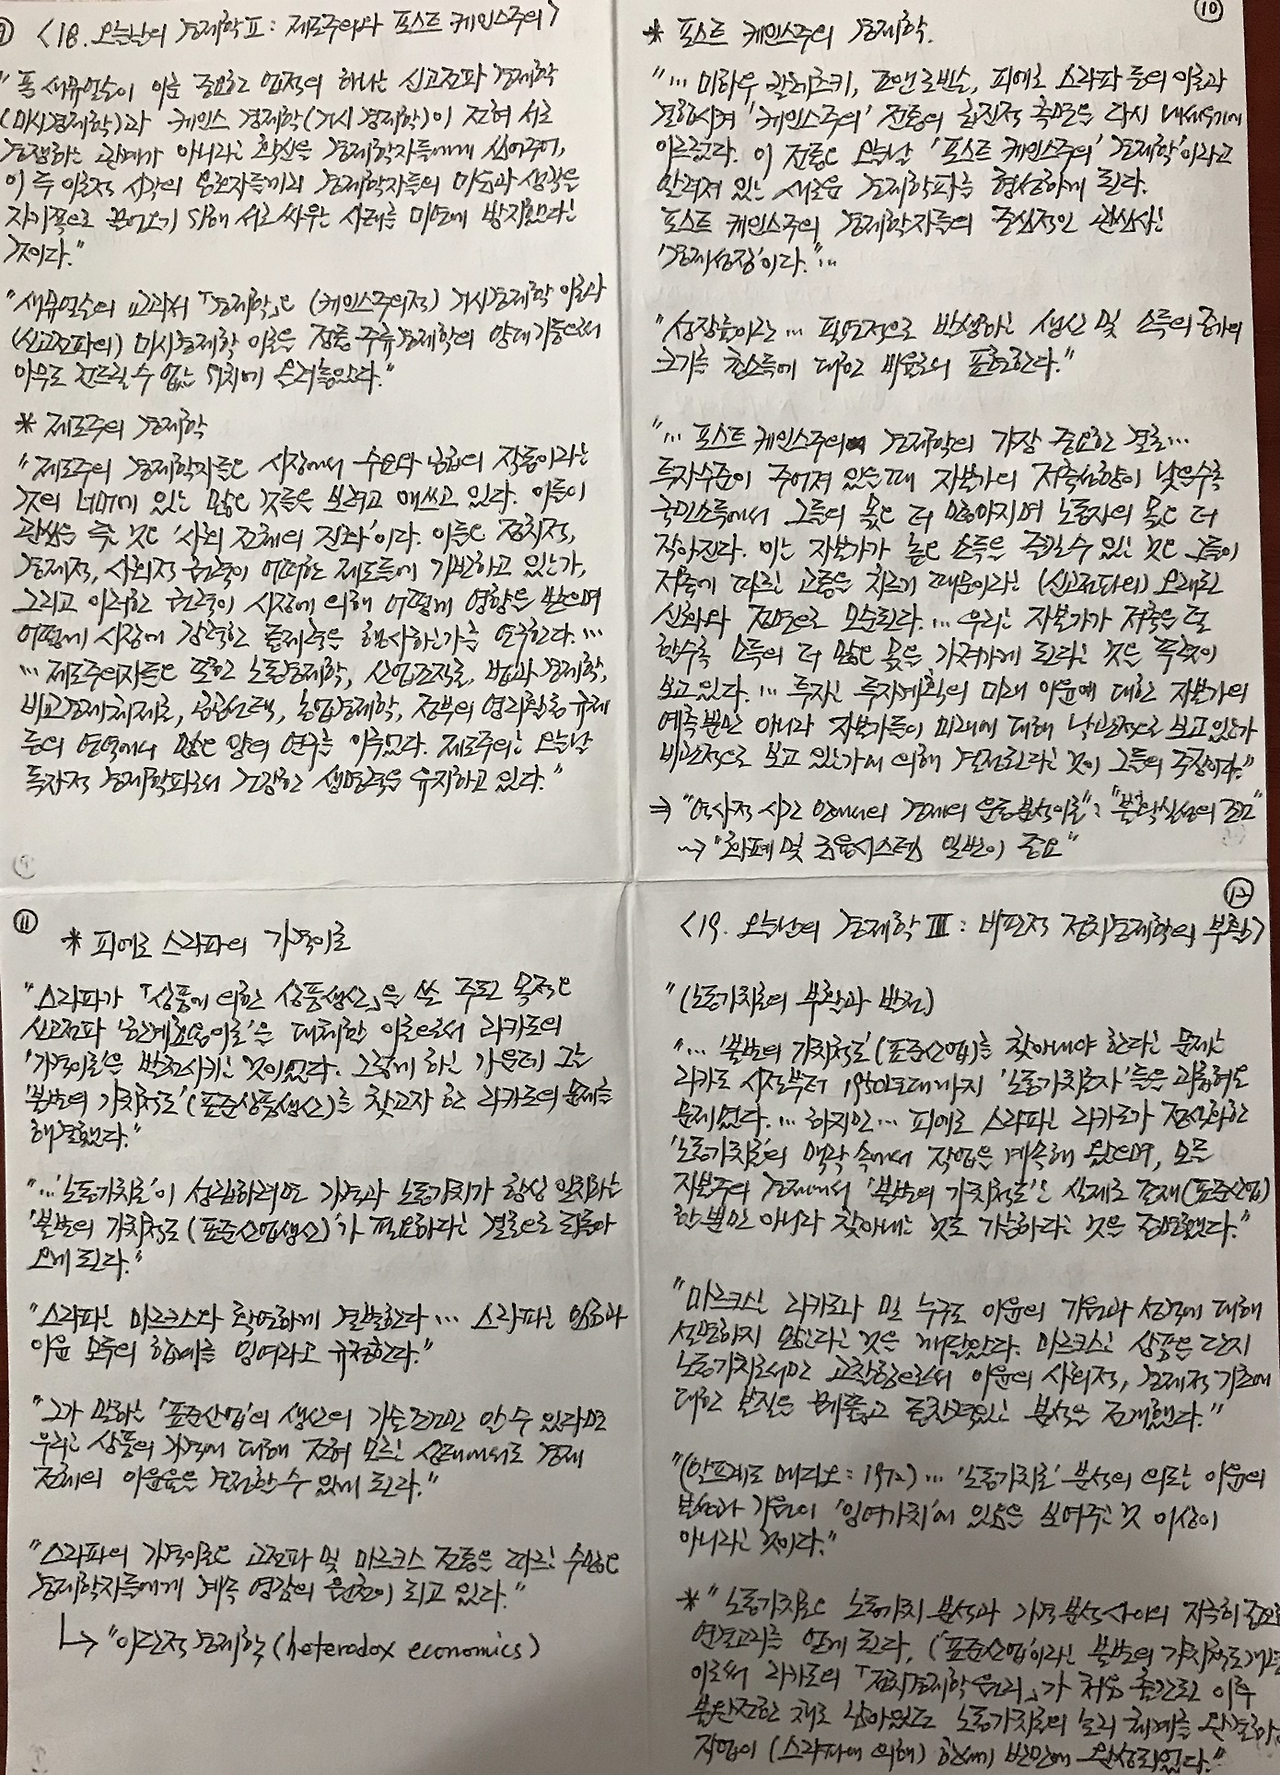 ⑨ <18. 오늘날의 경제학 Ⅱ : 제도주의와 포스트 케인스주의>
"폴 새뮤얼슨이 이룬 중요한 업적의 하나는 신고전파 경제학
(미시경제학)과 케인스 경제학(거시경제학)이 전혀 서로
경쟁하는 관계가 아니라는 확신을 경제학자들에게 심어주어,
이 두 이론적 시각의 옹호자들끼리 경제학자들의 마음과 생각을
자기쪽으로 끌어오기 위해 서로 싸우는 사태를 미연에 방지했다는
것이다."
"새뮤얼슨의 교과서 「경제학」은 (케인스주의적) 거시경제학 이론과
(신고전파의) 미시경제학 이론을 정통 주류경제학의 양대기둥으로써
아무도 건드릴 수 없는 위치에 올려놓았다."
* 제도주의 경제학
"제도주의 경제학자들은 시장에서 수요와 공급의 작동이라는
것의 너머에 있는 많은 것들을 보려고 애쓰고 있다. 이들이
관심을 쏟는 것은 '사회 전체의 진화'이다. 이들은 정치적,
경제적, 사회적 권력이 어떠한 제도들에 기반하고 있는가,
그리고 이러한 권력이 시장에 의해 어떻게 영향을 받으며
어떻게 시장에 강력한 통제력을 행사하는가를 연구한다. …
… 제도주의자들은 또한 노동경제학, 산업조직론, 법과 경제학,
비교경제체제론, 공공선택, 농업경제학, 정부의 영리활동 규제
등의 영역에서 많은 양의 연구를 이루었다. 제도주의는 오늘날
독자적 경제학파로서 건강한 생명력을 유지하고 있다."
⑩
* 포스트 케인스주의 경제학.
"… 미하우 칼레츠키, 조앤 로빈슨, 피에로 스라파 등의 이론과
결합시켜 '케인스주의' 전통의 혁신적 측면을 다시 내세우기에
이르렀다. 이 전통은 오늘날 '포스트 케인스주의' 경제학'이라고
알려져 있는 새로운 경제학파를 형성하게 된다.
포스트 케인스주의 경제학자들의 중심적인 관심사는
'경제성장'이다."…
"성장률이라는 … 필연적으로 발생하는 생산 및 소득의 증가의
크기를 총소득에 대한 비율로의 표현한다."
"… 포스트 케인스주의 경제학의 가장 중요한 결론…
투자수준이 주어져 있을 때 자본가의 저축성향이 낮을수록
국민소득에서 그들의 몫은 더 많아지며 노동자의 몫은 더
작아진다. 이는 자본가가 높은 소득을 즐길 수 있는 것은 그들이
저축에 따르는 고통을 치르기 때문이라는 (신고전파의) 오래된
신화와 정면으로 모순된다. … 우리는 자본가가 저축을 덜
할수록 소득의 더 많은 몫을 가져가게 된다는 것을 똑똑히
보고 있다. … 투자는 투자계획의 미래 이윤에 대한 자본가의
예측뿐만 아니라 자본가들이 미래에 대해 낙관적으로 보고 있는가
비관적으로 보고 있는가에 의해 결정된다는 것이 그들의 주장이다."
⇒ "역사적 시간 안에서의 경제의 운동분석이론" : "불확실성의 강조"
⤳ "화폐 및 금융시스템 일반이 중요"
⑪
* 피에로 스라파의 가격이론
"스라파가 「상품에 의한 상품생산」을 쓴 주된 목적은
신고전파 '한계효용이론'을 대체할 이론으로서 리카도의
'가격이론'을 발전시키는 것이었다. 그렇게 하는 가운데 그는
'불변의 가치척도'(표준상품생산)를 찾고자 한 리카도의 문제를
해결했다."
"…'노동가치론'이 성립하려면 가격과 노동가치가 항상 일치하는
'불변의 가치척도 (표준산업생산)'가 필요하다는 결론으로 되돌아
오게 된다."
"스라파는 마르크스와 확연하게 결별한다 … 스라파는 임금과
이윤 모두의 합계를 잉여라고 규정한다."
"그가 말하는 '표준산업'의 생산의 기술조건만 알 수 있다면
우리는 상품의 가격에 대해 전혀 모르는 상태에서도 경제
전체의 이윤율을 결정할 수 있게 된다."
"스라파의 가격이론은 고전파 및 마르크스 전통을 따르는 수많은
경제학자들에게 계속 영감의 원천이 되고 있다."
↳ "이단적 경제학 (heterodox economics)
⑫
<19. 오늘날의 경제학 Ⅲ : 비판적 정치경제학의 부활>
"(노동가치론의 부활과 발전)
"… '불변의 가치척도'(표준산업)를 찾아내야 한다는 문제는
리카도 시절부터 1950년대까지 '노동가치론자'들을 괴롭혀온
문제였다. … 하지만 … 피에로 스라파는 리카도가 정식화한
'노동가치론'의 맥락 속에서 작업을 계속해 왔으며, 모든
자본주의 경제에서 '불변의 가치척도'는 실제로 존재(표준산업)
할 뿐만 아니라 찾아내는 것도 가능하다는 것을 증명했다."
"마르크스는 리카도나 밀 누구도 이윤의 기원과 성격에 대해
설명하지 않는다는 것을 깨달았다. 마르크스는 상품을 단지
노동가치로서만 고찰함으로써 이윤의 사회적, 경제적 기초에
대한 본질을 꿰뚫고 통찰력있는 분석을 전개했다."
"(알프레도 메디오 : 1972) … '노동가치론' 분석의 의도는 이윤의
본성과 기원이 '잉여가치'에 있음을 보여주는 것 이상이
아니라는 것이다."
* "노동가치론은 노동가치 분석과 가격 분석 사이의 지극히 중요한
연결고리를 얻게 된다. ('표준산업'이라는 불변의 가치척도
이로써 리카도의 「정치경제학 원리」가 처음 출간된 이후
불완전한 채로 남아있던 노동가치론의 논리 체계를 완결하는
작업이 (스라파에 의해) 한세기 반만에 완성되었다."